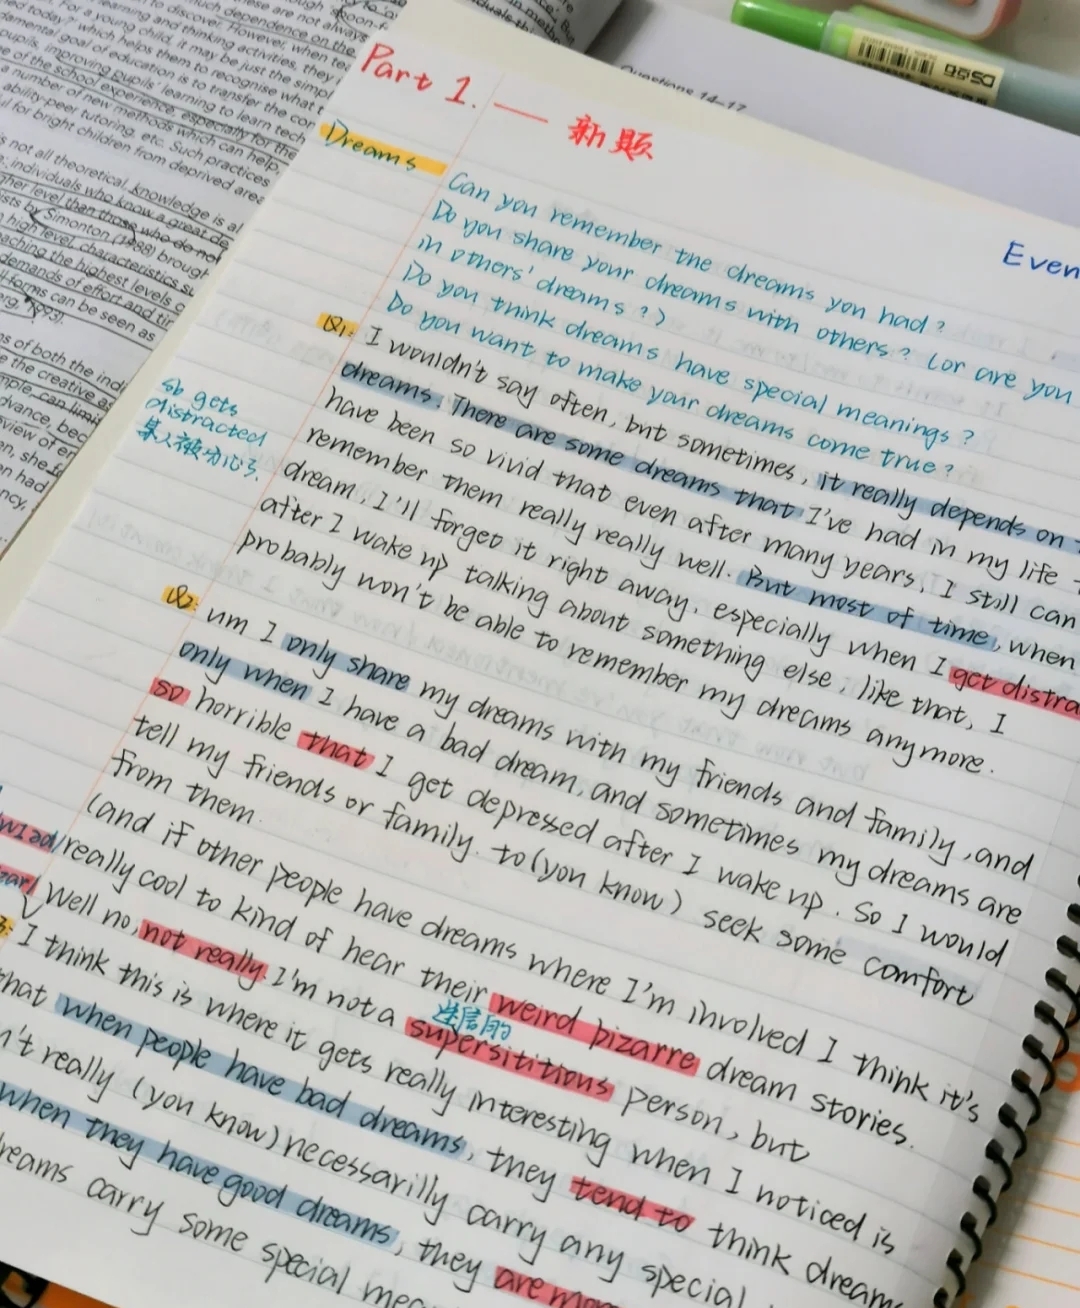 Part 1. — 新题
Dreams
Can you remember the dreams you had?
Do you share your dreams with others? (or are you
in others' dreams?)
Do you think dreams have special meanings?
Do you want to make your dreams come true?
Even
Q1: I wouldn't say often, but sometimes, it really depends on
dreams. There are some dreams that I've had in my life
have been so vivid that even after many years, I still can
remember them really really well. But most of time, when
dream, I'll forget it right away, especially when I get distra
after I wake up talking about something else, like that, I
probably won't be able to remember my dreams anymore.
sb gets
distracted
某人被分心了.
Q2: um I only share my dreams with my friends and family, and
only when I have a bad dream, and sometimes my dreams are
so horrible that I get depressed after I wake up. So I would
tell my friends or family. to (you know) seek some comfort
from them.
(and if other people have dreams where I'm involved I think it's
really cool to kind of hear their weird bizarre dream stories.
Well no, not really. I'm not a supersititious person, but
迷信的
I think this is where it gets really interesting when I noticed is
that when people have bad dreams, they tend to think dreams
n't really (you know) necessarilly carry any special
when they have good dreams, they are mor
dreams carry some special mea
Questions 14-17
not all theoretical, knowledge is al
individuals who know a great de
higher level than those who do not
ists by Simonton (1988) brough
high level, characteristics su
aching the highest levels o
demands of effort and tim
forms can be seen as
1993).
ability-peer tutoring, etc. Such practices
for bright children from deprived area
a number of new methods which can help,
of the school experience, especially for the
pupils, improving pupils' learning to learn tech
damental goal of education is to transfer the con
today" which helps them to recognise what t
For a young child, it may be just the simpl
learning and thinking activities, they
to discover. However, when tea
much dependence on the
these are not always
of both the indi
the creative as
can limit
dvance, bec
view of
n, she
n had
ncy,